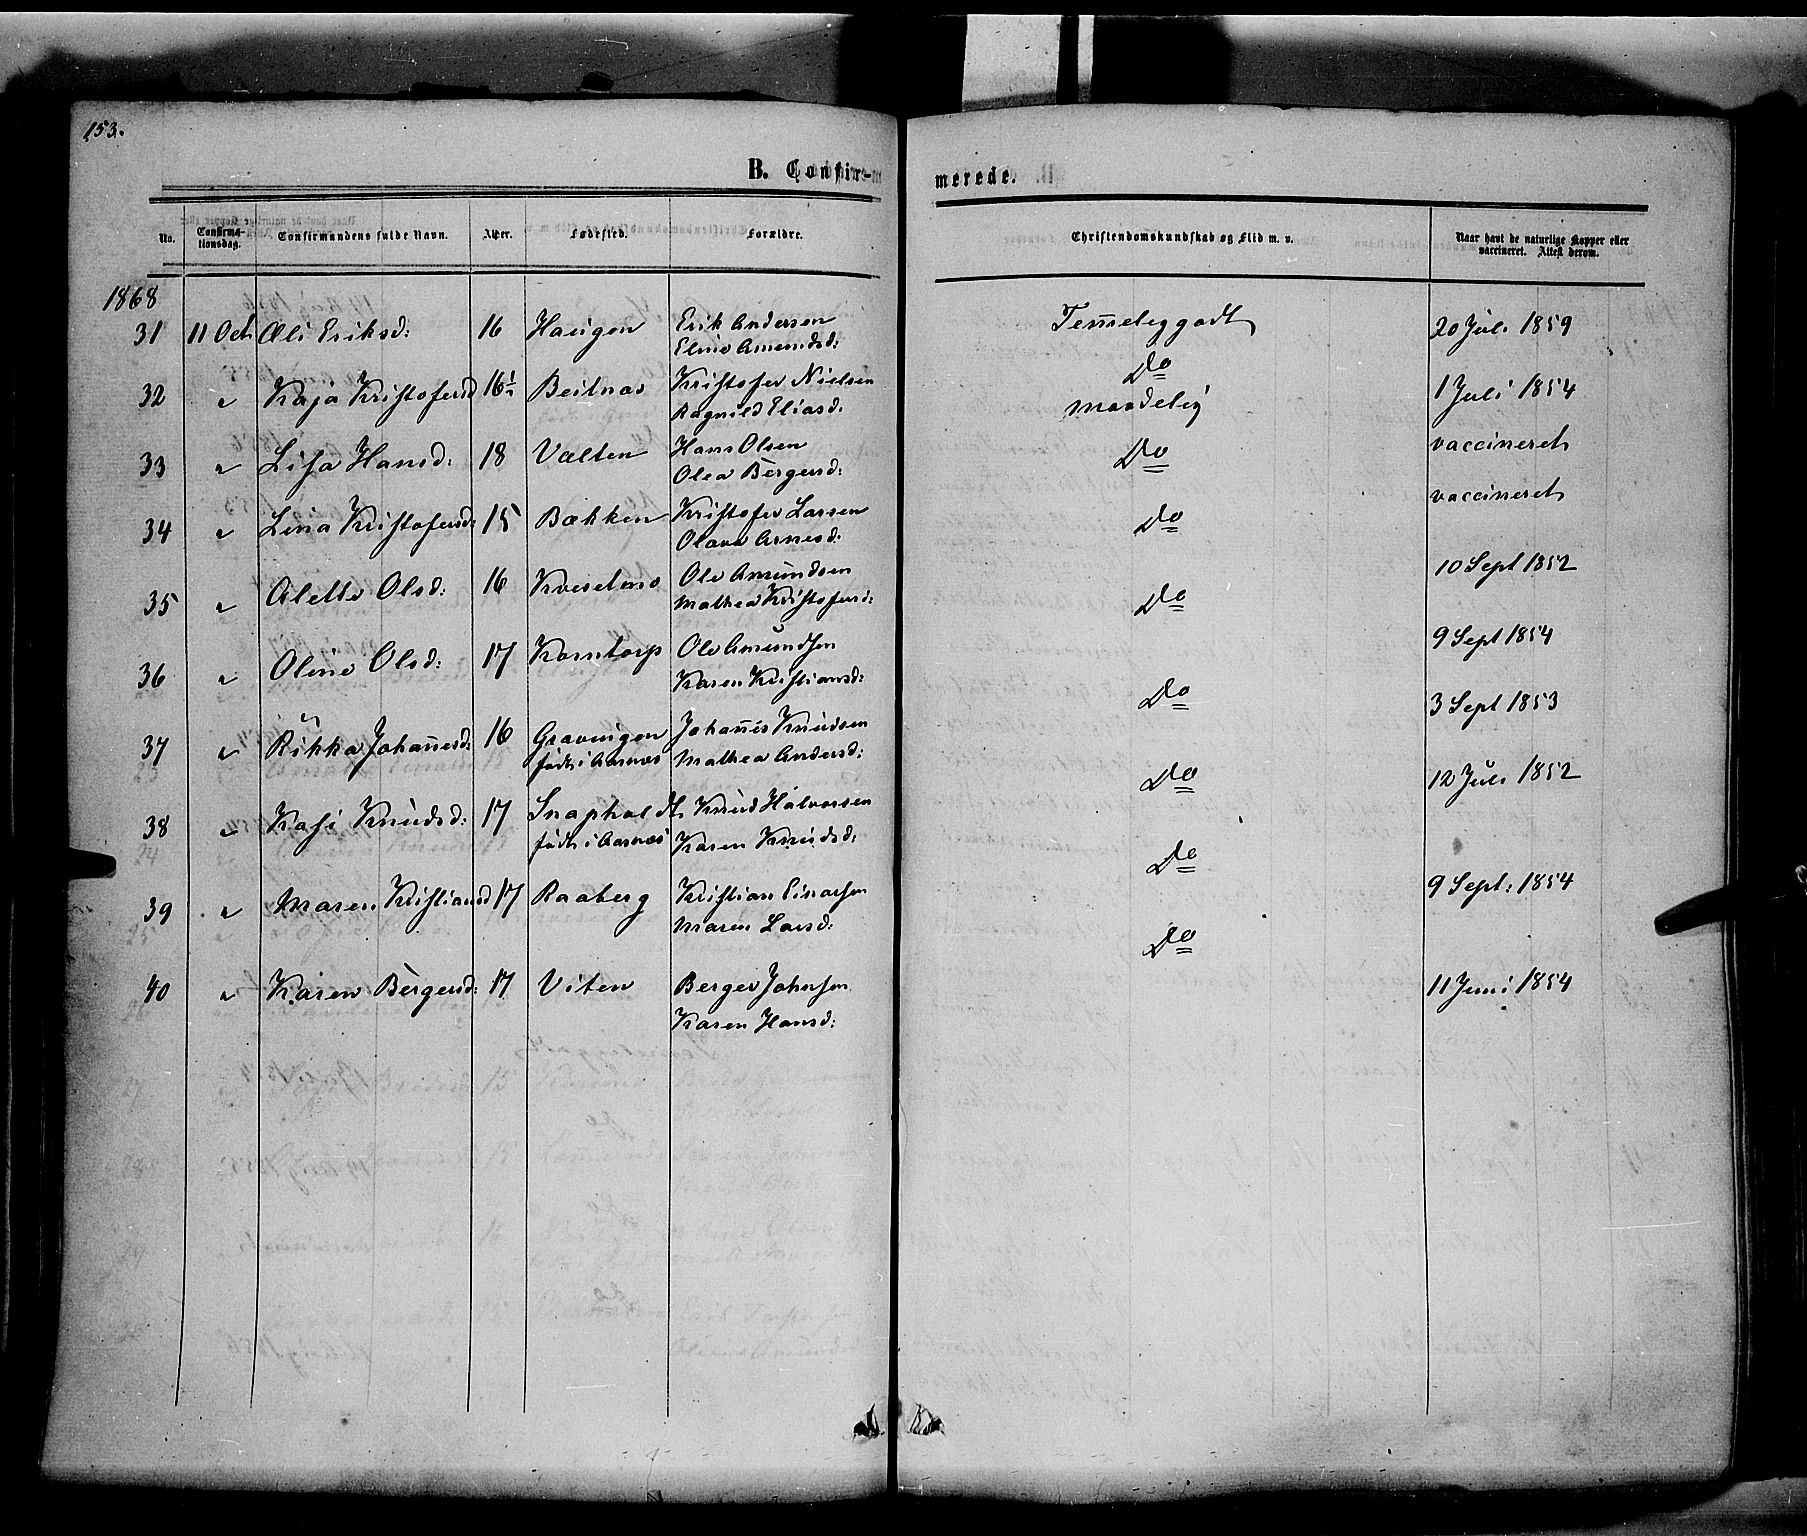 153.
B. Confir- merede.
No. Confirma-tionsdag. Confirmandens fulde Navn. Alder. Fødested. Forældre. Christendomskundskab og Flid m. v. Naar havt de naturlige Kopper eller vaccineret. Attest derom.
1868
31 11 Oct: Oli Eriksd: 16 Haugen Erik Andersen Temeliggodt 20 Juli 1859
Eline Amundsd:
32 " Kaja Kristofersd 16½ Beitnas Kristofer Nielsen Do 1 Juli 1854
Ragnild Eliasd. maadelig
33 " Lisa Hansd: 18 Valten Hans Olsen Do vaccineret
Olea Bergersd:
34 " Lina Kristofersd: 15 Bækken Kristofer Larsen Do vaccineret
Olava Arnesd:
35 " Alette Olsd: 16 Kveselmo Ole Amundsen Do 10 Sept 1852
Mathea Kristofersd:
36 " Oline Olsd: 17 Korntorp Ole Amundsen Do 9 Sept 1854
Karen Kristiansd:
37 " Rikka Johanesd: 16 Gravingen Johanes Knudsen Do 3 Sept 1853
født i Aasnæs Mathea Andersd:
38 " Kasi Knudsd: 17 Snapholdt Knud Halvorsen Do 12 Juli 1852
født i Aasnæs Karen Knudsd:
39 " Maren Kristiansd 17 Raaberg Kristian Einarsen Do 9 Sept: 1854
Maren Larsd:
40 " Karen Bergersd: 17 Viten Berger Johnsen 11 Juni 1854
Karen Hansd: